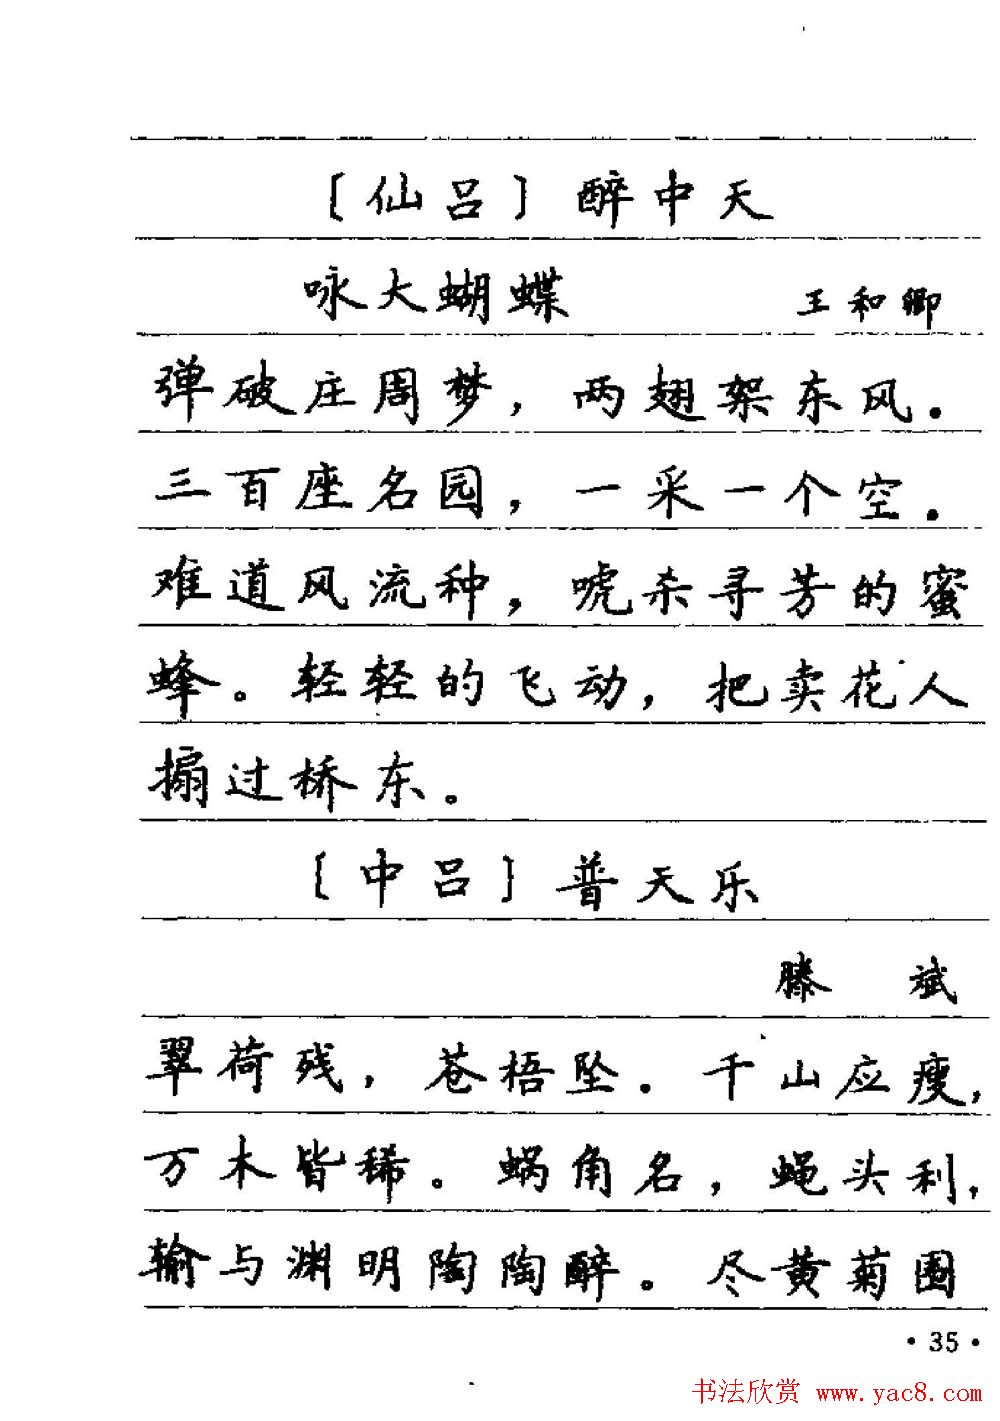 〔仙吕〕醉中天
咏大蝴蝶 王和卿
弹破庄周梦，两翅架东风。
三百座名园，一采一个空。
难道风流种，唬杀寻芳的蜜
蜂。轻轻的飞动，把卖花人
搧过桥东。
〔中吕〕普天乐
滕 斌
翠荷残，苍梧坠。千山应瘦，
万木皆稀。蜗角名，蝇头利，
输与渊明陶陶醉。尽黄菊围
·35·
书法欣赏 www.yac8.com